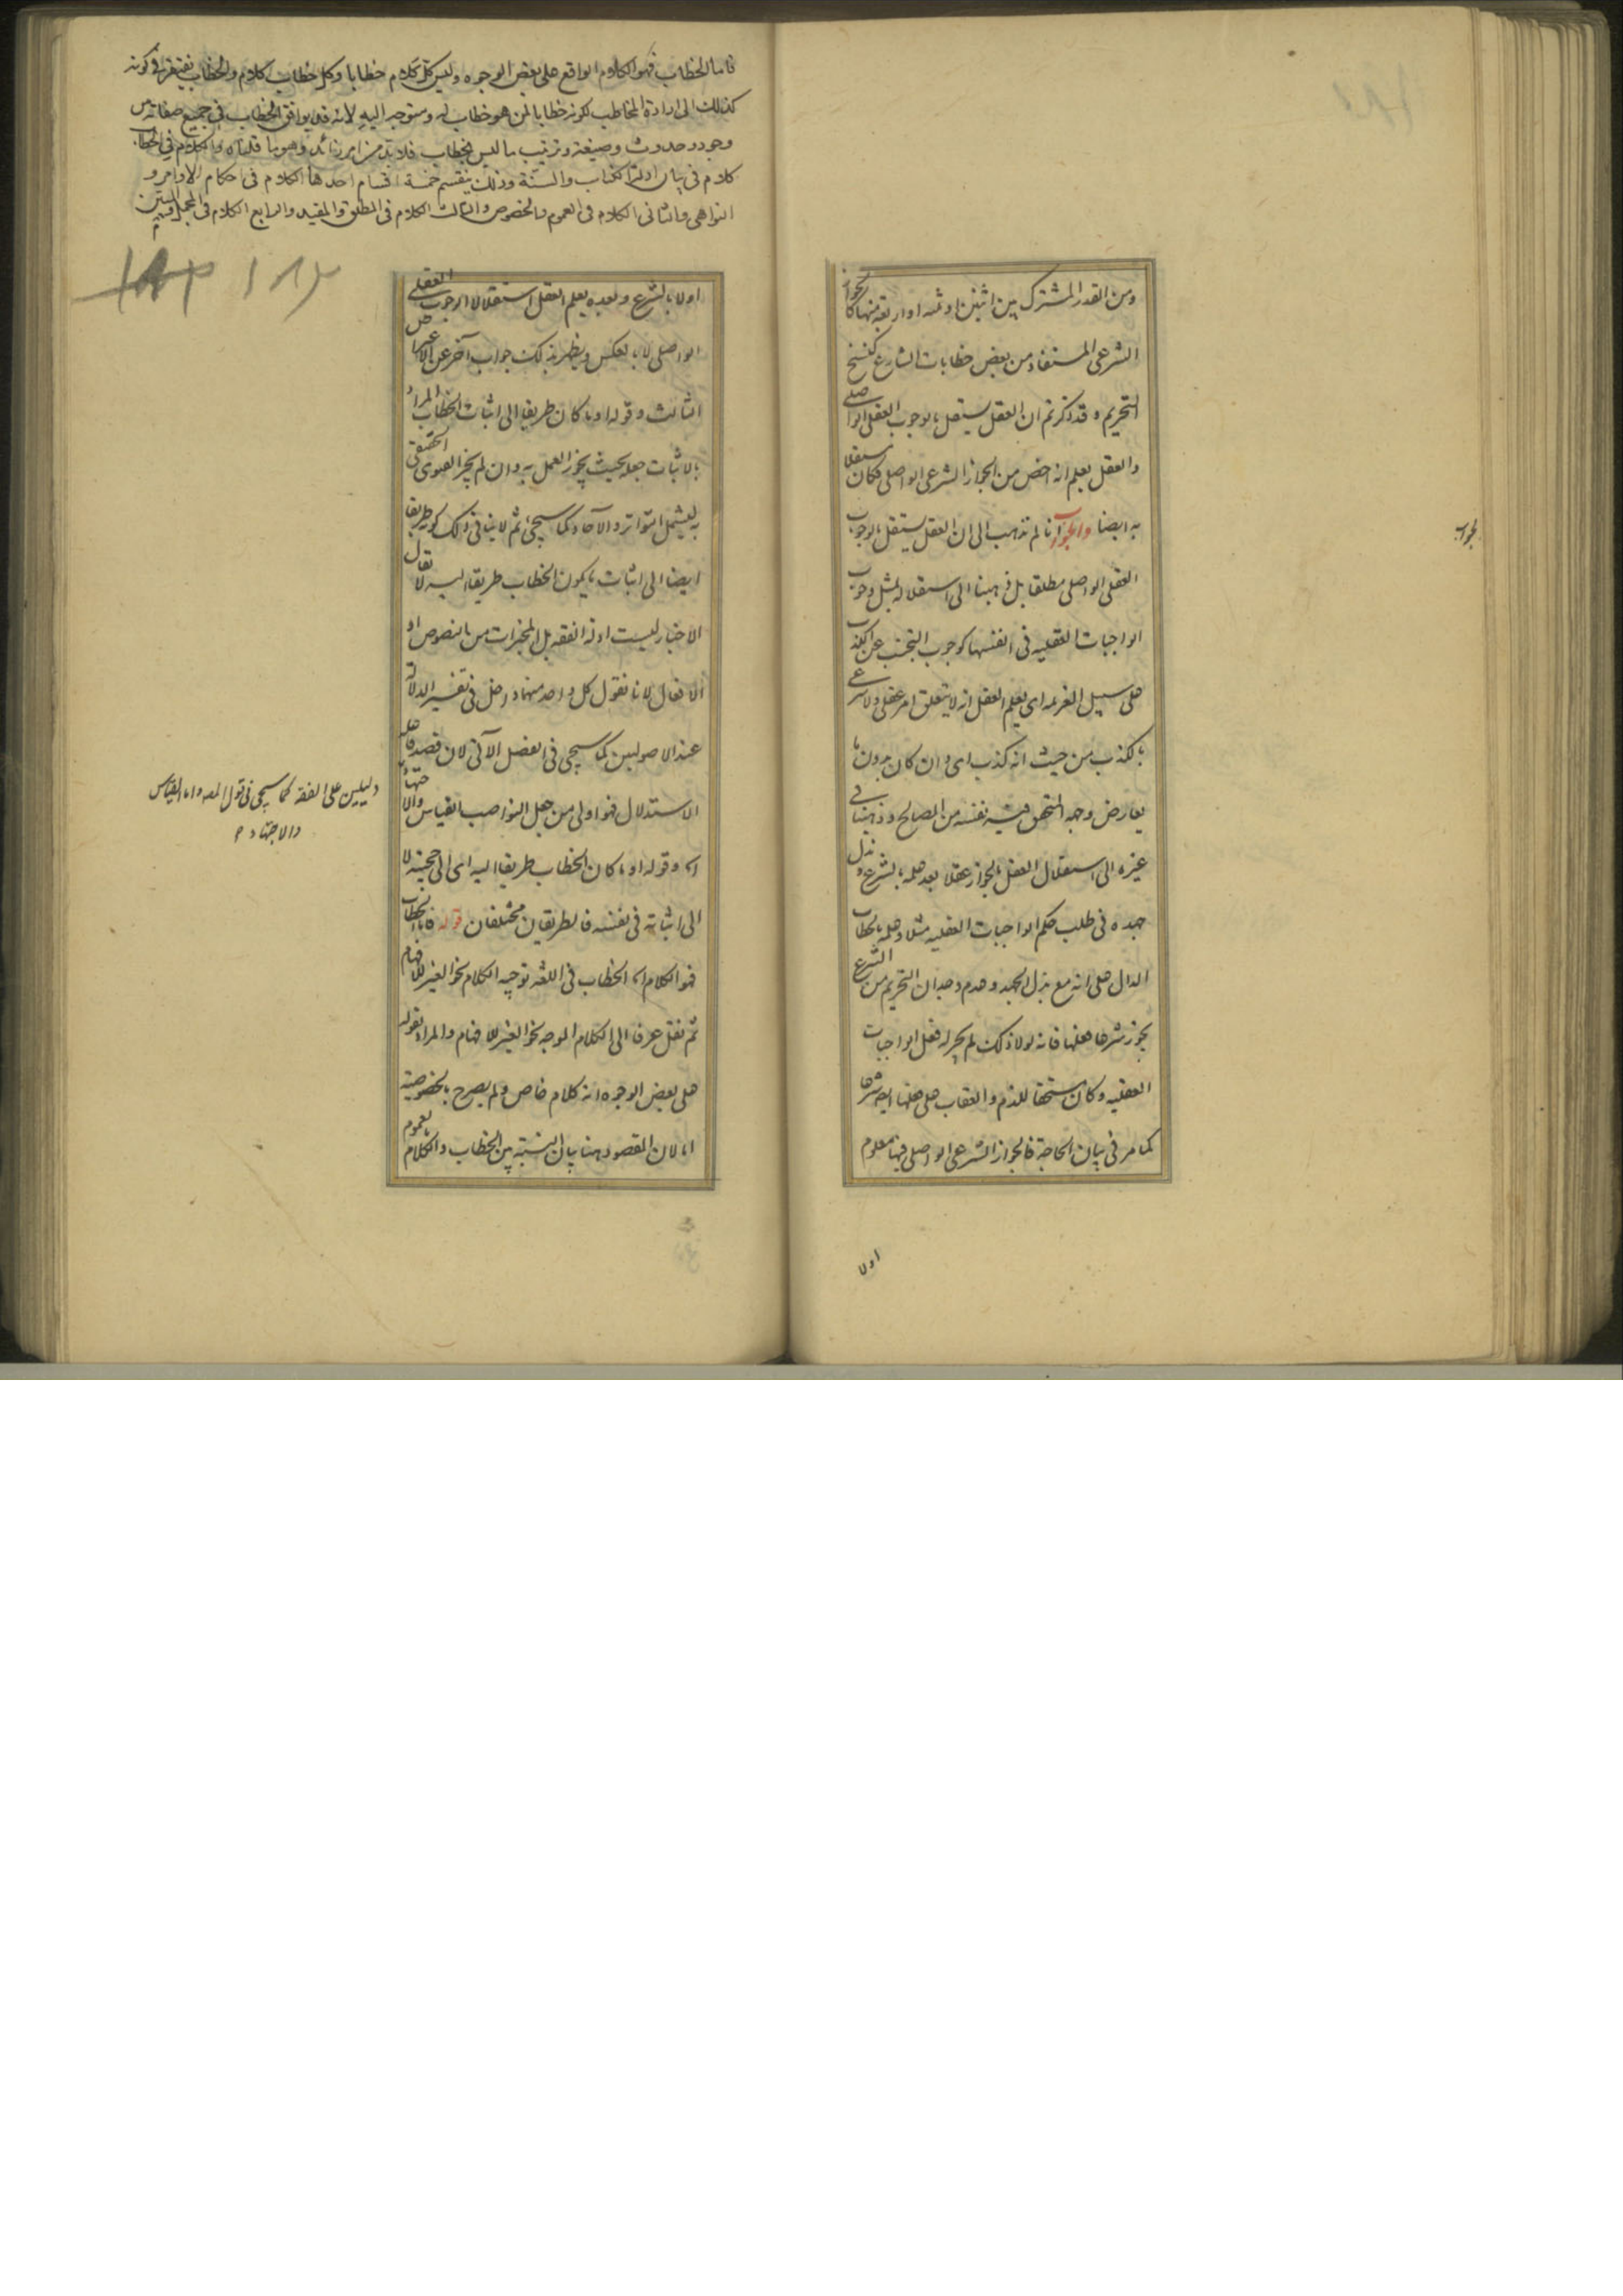 ومن القدر المشترك بين اثنين او ثلثه او اربعة منها كالجواز
الشرعى المستفاد من بعض خطابات الشارع كنسخ
التحريم وقد ذكرتم ان العقل يستقل بالوجوب العقلى الواصلى
والعقل يعلم انه اخص من الجواز الشرعى الواصلى فكان مستقلا
به ايضا والجواب انا لم نذهب الى ان العقل يستقل بالوجوب
العقلى الواصلى مطلقا بل ذهبنا الى استقلاله بمثل وجوب
الواجبات العقليه فى انفسها كوجوب التجنب عن الكذب
على سبيل العزيمه اى يعلم العقل انه لا يتعلق امر عقلى ولا شرعى
بالكذب من حيث انه كذب اى وان كان بدون ما
يعارض وجه القبح فيه نفسه من المصالح وذهبنا فى
غيره الى استقلال العقل بالجواز عقلا بعد علمه بالشرع وبذل
جهده فى طلب حكم الواجبات العقليه مثلا وعلمه بالخطاب
الدال على انه مع بذل الجهد وعدم وجدان التحريم من الشرع
يجوز شرعا فعلها فانه لولا ذلك لم يجز له فعل الواجبات
العقليه وكان مستحقا للذم والعقاب على فعلها ايضا شرعا
كما مر فى بيان الحاجة فالجواز الشرعى الواصلى فيها معلوم
اولا
فاما الخطاب فهو الكلام الواقع على بعض الوجوه وليس كل كلام خطابا وكل خطاب كلام والخطاب يفتقر فى كونه
كذلك الى ارادة المخاطب لكونه خطابا لمن هو خطاب له ومتوجه اليه لانه قد يوافق الخطاب فى جميع صفاته من
وجود وحدوث وصيغة وترتيب ما ليس بخطاب فلا بد من امر زائد وهو ما قلناه والكلام فى الخطاب
كلام فى بيان ادلة الكتاب والسنة وذلك ينقسم خمسة اقسام احدها الكلام فى احكام الاوامر و
النواهى والثانى الكلام فى العموم والخصوص والثالث الكلام فى المطلق والمقيد والرابع الكلام فى المجمل والمبين
١٨٣
اولا بالشرع وبعده يعلم العقل استقلالا الوجوب العقلى
الواصلى لا بالعكس ويظهر بذلك جواب آخر عن الاعتراض
الثالث وقوله او ما كان طريقا الى اثبات الخطاب المراد
بالاثبات جعله بحيث يجوز العمل به وان لم يجز الفتوى الحقيقى
به ليشمل المتواتر والآحاد كما سيجئ ثم لا ينافى ذلك كونه طريقا
ايضا الى اثبات ما يكون الخطاب طريقا اليه لا يقال
الاخبار ليست ادلة الفقه بل المخبرات من النصوص او
الافعال لانا نقول كل واحد منهما داخل فى تفسير الدلالة
عند الاصوليين كما سيجى فى الفصل الآتى لان قصد فاعله
الاستدلال فهو اولى من جعل النواصب القياس والاجتهاد
دليلين على الفقه كما سيجى فى قول المصه واما القياس
والاجتهاد م
اه وقوله او ما كان الخطاب طريقا اليه اى الى حجيته لا
الى اثباته فى نفسه فالطريقان مختلفان قوله فاما الخطاب
فهو الكلام اه الخطاب فى اللغه توجيه الكلام نحو الغير للافهام
ثم نقل عرفا الى الكلام الموجه نحو الغير للافهام والمراد بقوله
على بعض الوجوه انه كلام خاص ولم يصرح بالخصوصية
اما لان المقصود هنا بيان النسبة بين الخطاب والكلام بالعموم